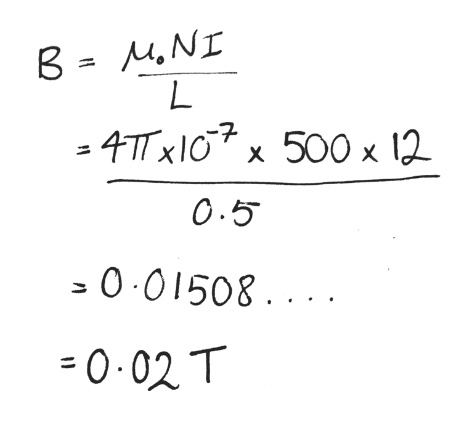 B = μ₀NI / L
= 4π×10⁻⁷ × 500 × 12 / 0.5
= 0.01508....
= 0.02 T